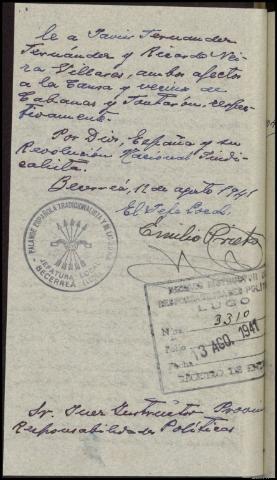 le a Javier Fernandez
Fernández y Ricardo Nei-
ra Villares, ambos afectos
a la Causa y vecinos de
Cabanas y Fontarón, respec-
tivamente.
Por Dios, España y su
Revolución Nacional Sindi-
calista.
Becerreá, 12 de agosto 1941
El Jefe Local,
Emilio Prieto
FALANGE ESPAÑOLA TRADICIONALISTA Y DE LAS J.O.N.S.
JEFATURA LOCAL
BECERREÁ (LUGO)
JUZGADO INSTRUCTOR DE
RESPONSABILIDADES POLITICAS
LUGO
Núm. 3310
Folio
Fecha 13 AGO. 1941
REGISTRO DE ENTRADA
Sr. Juez Instructor Provin
Responsabilidades Políticas